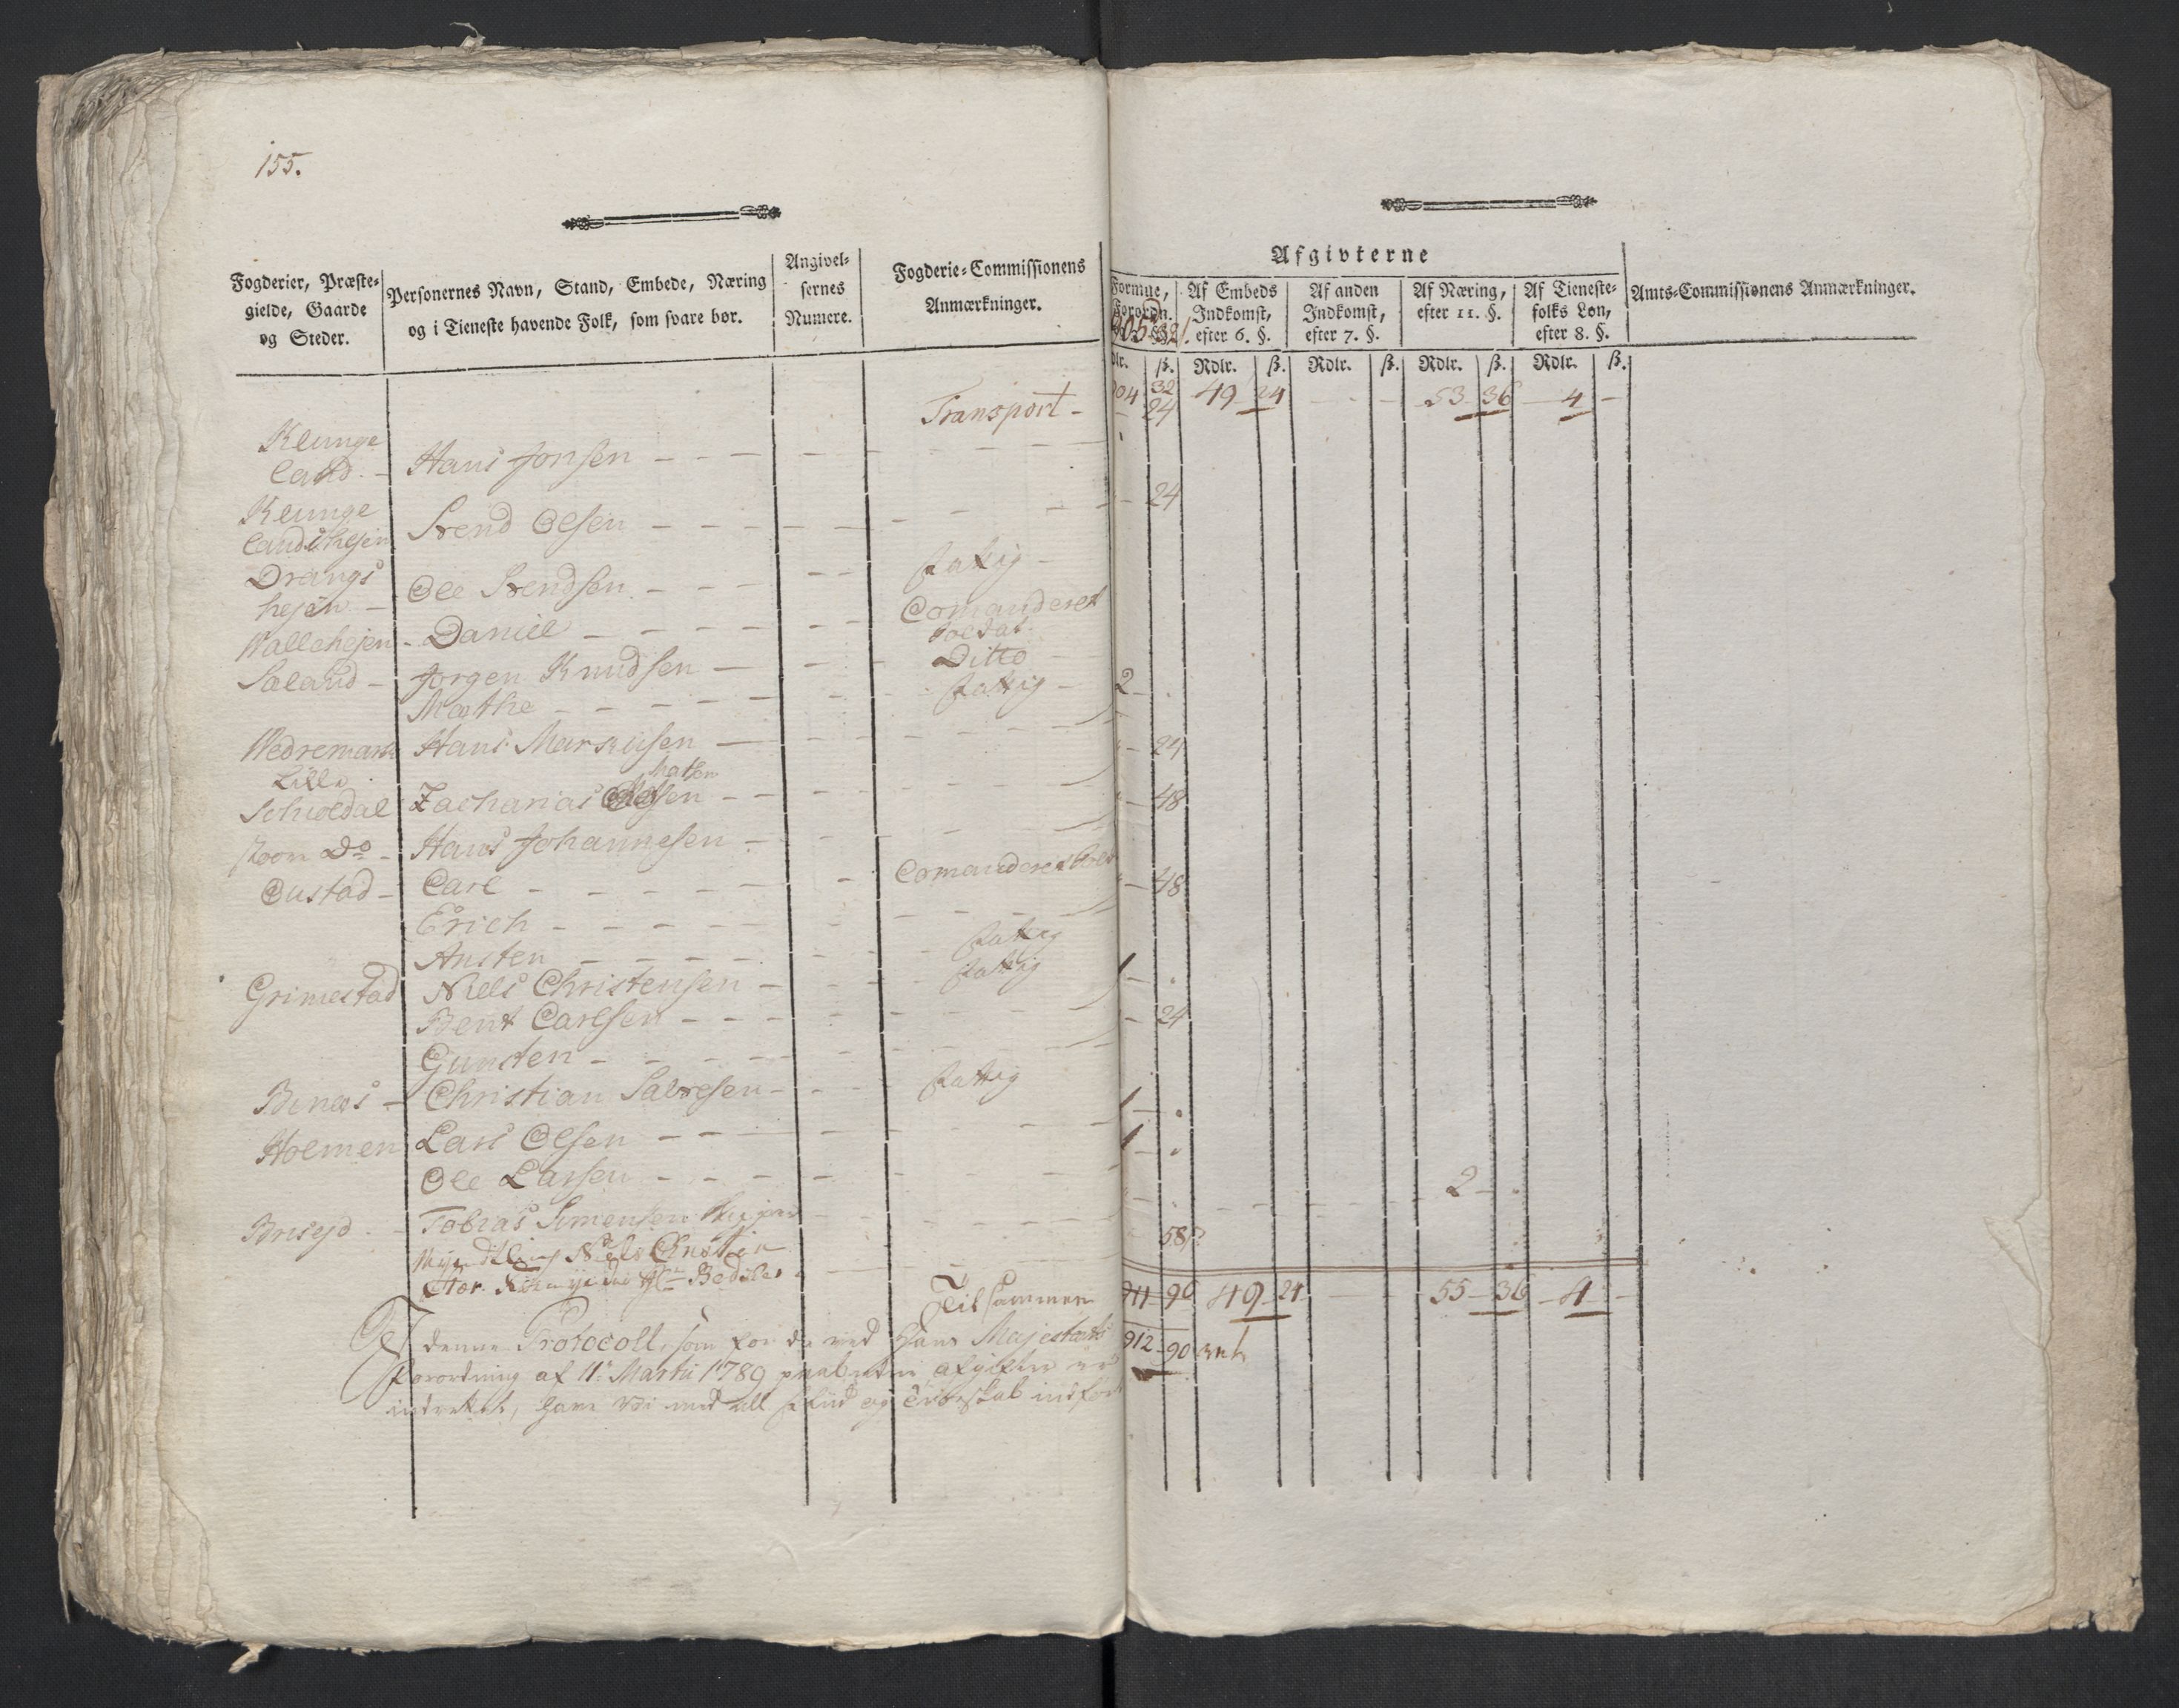 155.
Fogderier, Præste-
gielde, Gaarde
og Steder.
Personernes Navn, Stand, Embede, Næring
og i Tieneste havende Folk, som svare bør.
Angivel-
sernes
Numere.
Fogderie-Commissionens
Anmærkninger.
Afgivterne
Formue,
Forordn.
905 32
Af Embeds
Indkomst,
efter 6. §.
Af anden
Indkomst,
efter 7. §.
Af Næring,
efter 11. §.
Af Tieneste-
folks Løn,
efter 8. §.
Amts-Commissionens Anmærkninger.
dlr. ß. Rdlr. ß. Rdlr. ß. Rdlr. ß. Rdlr. ß.
Transport - 904 32 49 24 - - 53 36 4 -
24
Klunge
land - Hans Jonsen - - -
Klunge
landshejen Svend Olsen - - - 24
Drangs
hejen - Ole Svendsen - - - fattig -
Wallehejen - Daniel - - - Comanderet
Soldat
Saland - Jørgen Knudsen - - Ditto
Mathe - - - fattig - 2 -
Wedremark Hans Markusen -
Lille
Scholdal Zacharias Olesen - - - 24
stoore Do - Hans Johannesen - 48
Oustad - Carl - - - Comanderet
Erich - - - 48
Austen - - - fattig
Grimestad Niels Christensen - fattig 1 -
Bent Carlsen - - - 24
Gunsten - - -
Benæs - Christian Salvesen - - fattig
Holmen Lars Olsen - - - 1 -
Ole Larsen - - - 1 -
Brisejd - Tobias Simensen 2 -
Myndtling Niels
58
Tilsammen 911 90 49 24 - - 55 36 4 -
912 90
denne Protocoll, som for de ved Hans Majestæts
Forordning af 11te Martii 1789 paabudne afgifter er
indrettet, have vi med all fliid og Troeskab indført